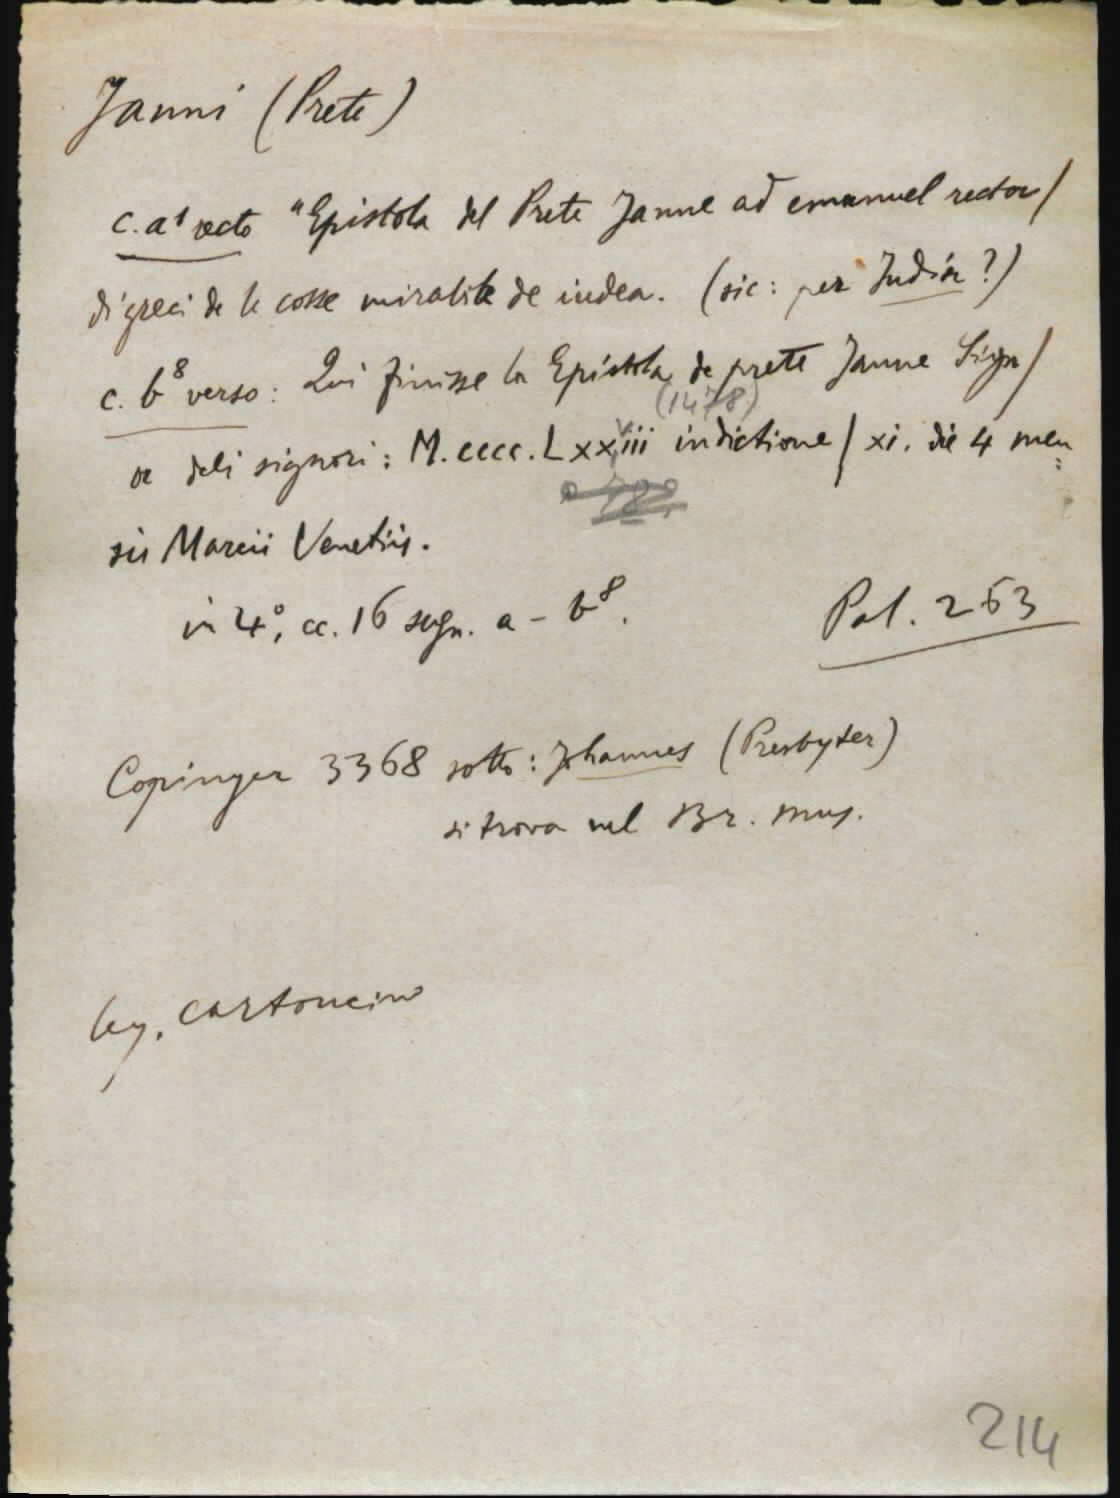 Janni (Prete)
c. a1 recto "Epistola del Prete Janne ad emanuel rector/
di greci de le cosse mirabile de indea. (sic: per India?)
c. b8 verso: Qui finisse la Epistola de prete Janne Sign/
(1478)
or deli signori: M.cccc.Lxxviii indictione / xi. die 4 men
sis Marcii Venetiis.
in 4°, cc. 16 segn. a - b8.
Pal. 263
Copinger 3368 sotto: Johannes (Presbyter)
si trova nel Br. Mus.
leg. cartoncino
214